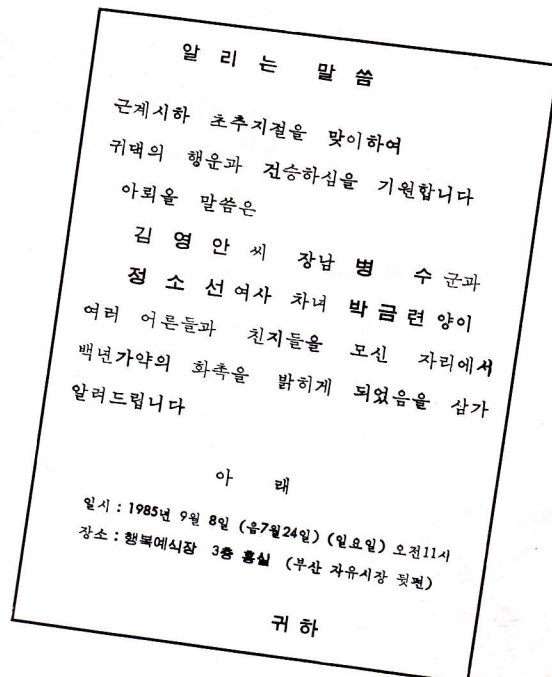 알 리 는 말 씀
근계시하 초추지절을 맞이하여
귀댁의 행운과 건승하심을 기원합니다
아뢰올 말씀은
김 영 안 씨 장남 병 수 군과
정 소 선 여사 차녀 박금련 양이
여러 어른들과 친지들을 모신 자리에서
백년가약의 화촉을 밝히게 되었음을 삼가
알려드립니다
아 래
일시 : 1985년 9월 8일 (음7월24일) (일요일) 오전11시
장소 : 행복예식장 3층 홍실 (부산 자유시장 뒷편)
귀 하